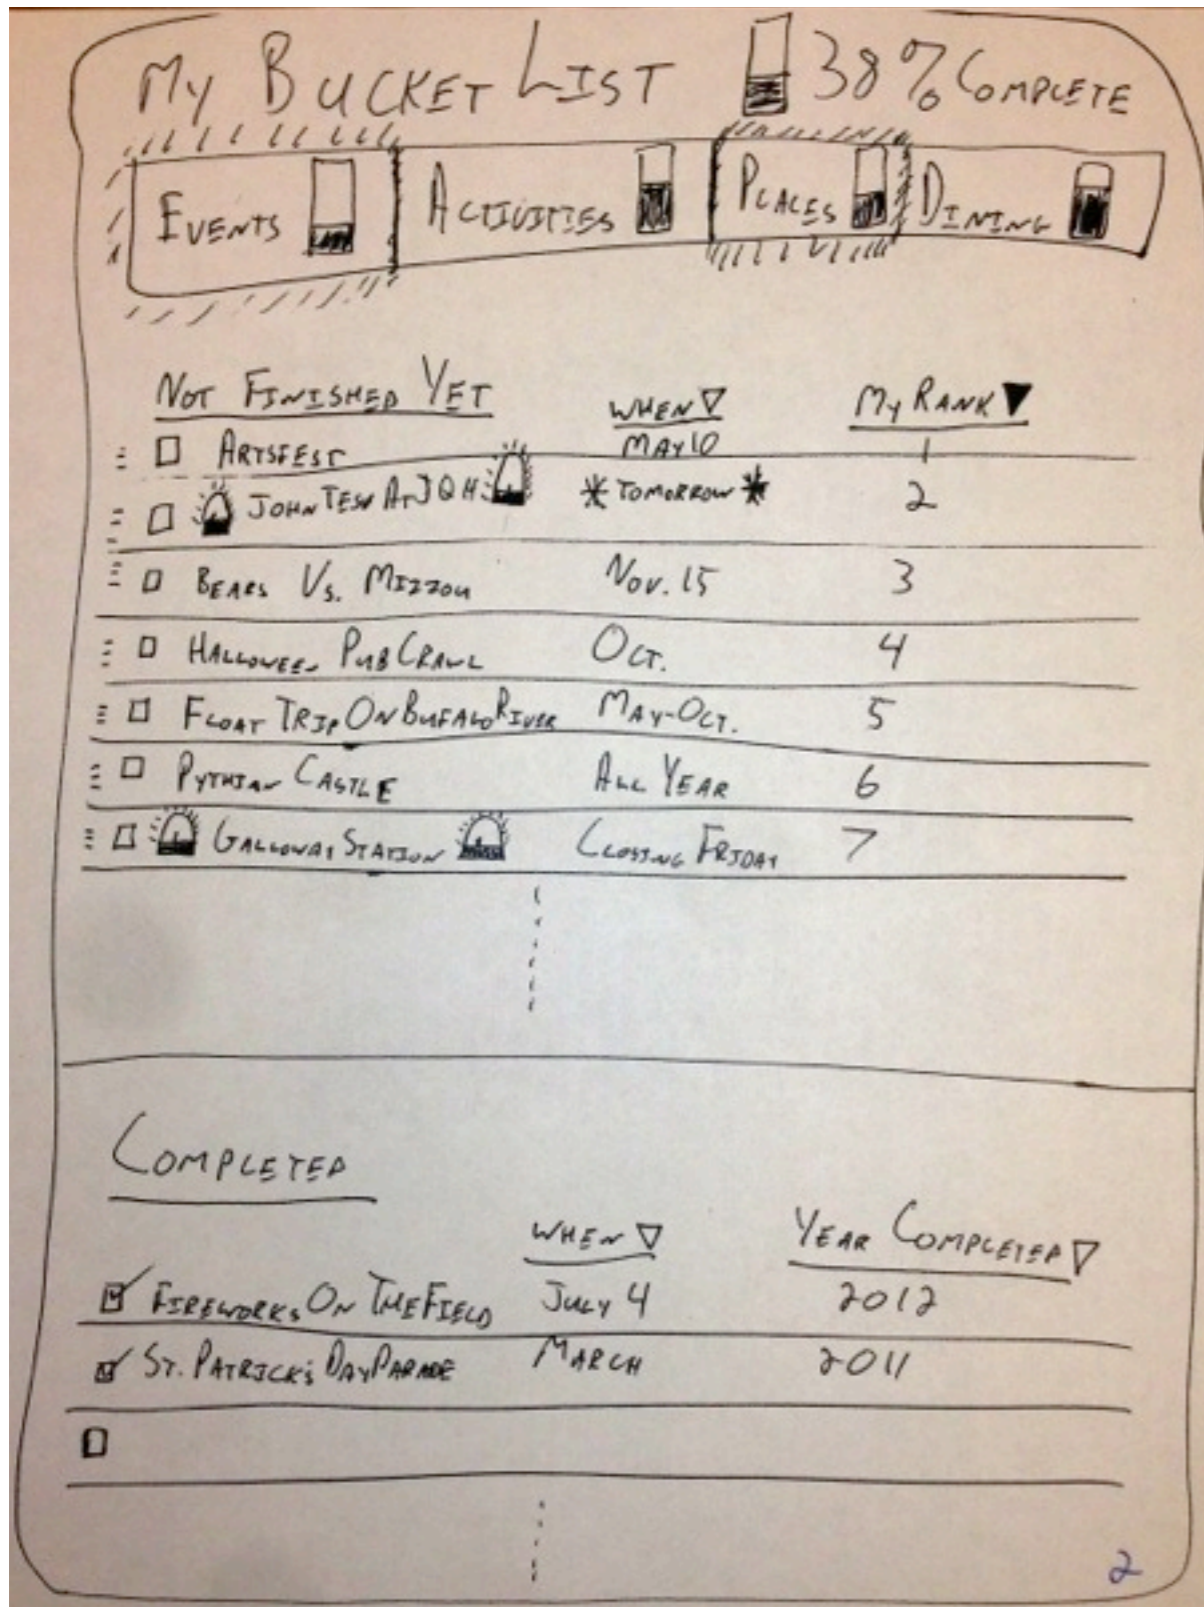 My Bucket List 38% Complete
Events Activities Places Dining
Not Finished Yet When My Rank
Artsfest May 10 1
John Tesh At JQH *Tomorrow* 2
Bears Vs. Mizzou Nov. 15 3
Halloween Pub Crawl Oct. 4
Float Trip On Bufalo River May-Oct. 5
Pythian Castle All Year 6
Galloway Station Closing Friday 7
Completed
When Year Completed
Fireworks On The Field July 4 2012
St. Patrick's Day Parade March 2011
2